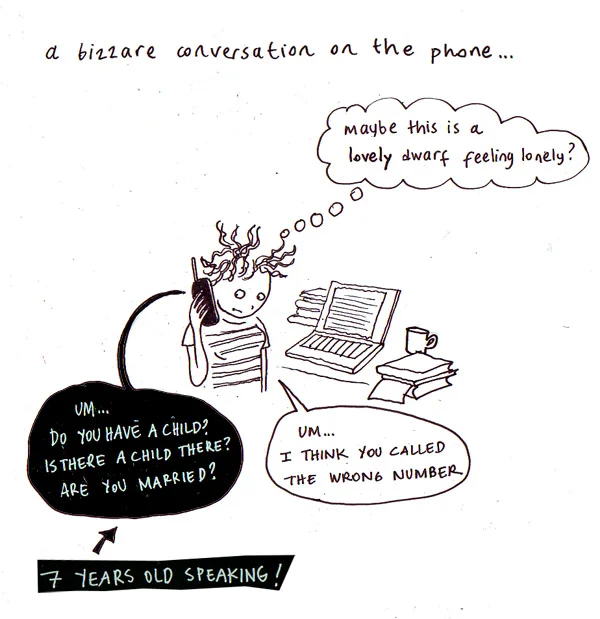 a bizzare conversation on the phone...
Maybe this is a
lovely dwarf feeling lonely?
UM...
DO YOU HAVE A CHILD?
IS THERE A CHILD THERE?
ARE YOU MARRIED?
UM...
I THINK YOU CALLED
THE WRONG NUMBER
7 YEARS OLD SPEAKING!